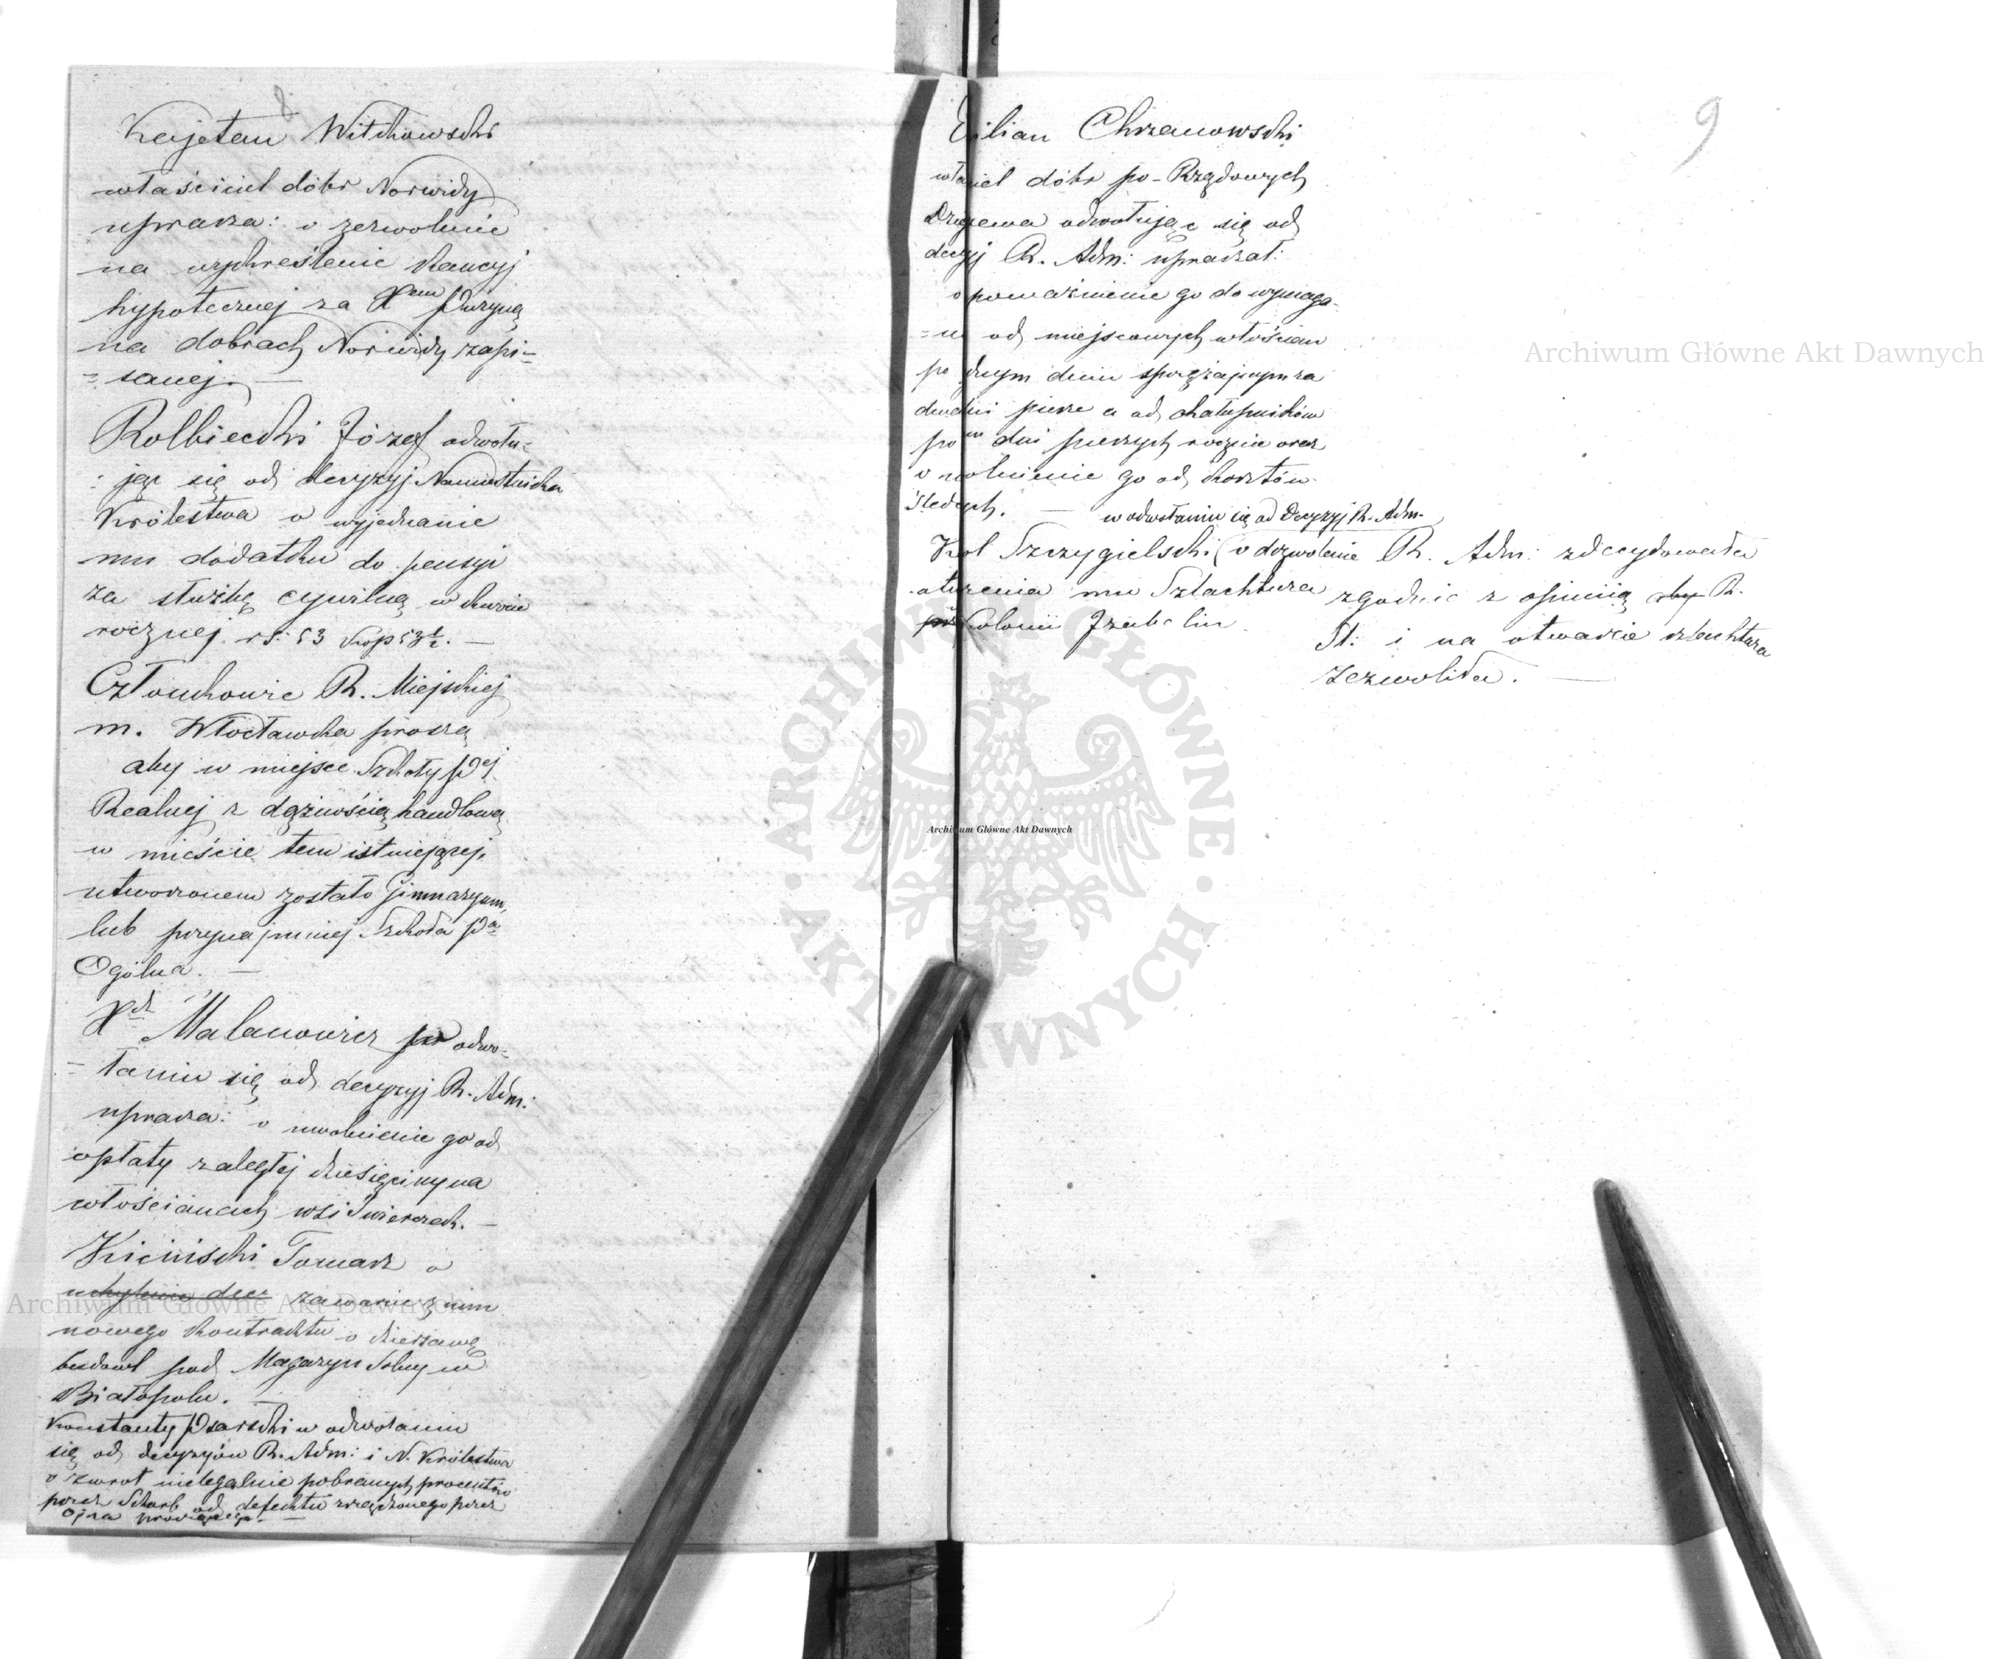 8
Kajetan Witkowski
właściciel dóbr Norwidy
uprasza: o zezwolenie
na wykreślenie Kaucyj
hypotecznej za Xem
na dobrach Norwidy zapi-
= sanej. —
Kolbiecki Józef odwołu-
= jąc się od decyzyj Namiestnika
Królestwa o wyjednanie
mu dodatku do pensyi
za służbę cywilną w kwocie
rocznej rs: 53 Kop 53½. —
Członkowie R. Miejskiej
m. Włocławka proszą
aby w miejsce Szkoły Pej
Realnej z dążnością handlową
w mieście tem istniejącej,
utworzonem zostało Gimnazyum,
lub przynajmniej Szkoła Pa
Ogólna. —
Xdz Malanowicz po odwo-
= łaniu się od decyzyj R. Adm:
uprasza: o uwolnienie go od
opłaty zaległej dziesięciny na
włościanach wsi Świerczach. —
Kiciński Tomasz o
uchylenie dec zawarcie z nim
nowego Kontraktu o dzierżawę
budowl pod Magazyn Solny w
Białopolu. —
Konstanty Psarski w odwołaniu
się od decyzyów R. Adm: i N. Królestwa
o zwrot nielegalnie pobranych procentów
przez Skarb od defektu zrządzonego przez
Ojca —
9
Chrzanowski
dóbr po-Rządowych
odwołując się od
decyj R. Adm: upraszał:
o powaśnienie go do wymaga-
= od miejscowych włościan
po dnym dniu sprzężajnym za
piesze a od chałupników
po dni pieszych rocznie oraz
o uwolnienie go od Kosztów
Śledczych. —
w odwołaniu się od Decyzyj R. Adm.
Kol Szczygielski (o dozwolenie
otworzenia mu Szlachtuza
Kolonii Izabelin
R. Adm: zdecydowała
zgodnie z opinią R.
St: i na otwarcie szlachtuza
zezwoliła. —
Archiwum Główne Akt Dawnych
Archiwum Główne Akt Dawnych
Archiwum Główne Akt Dawnych
ARCHIWUM GŁÓWNE
AKT DAWNYCH